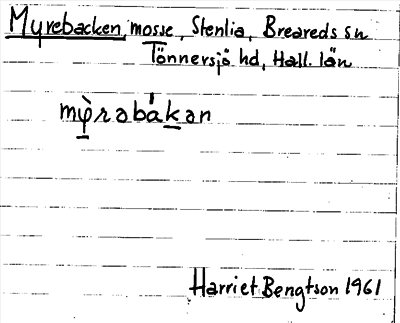 Myrebacken, mosse, Stenlia, Breareds sn
Tönnersjö hd, Hall. län
mỳrabákan
Harriet Bengtson 1961